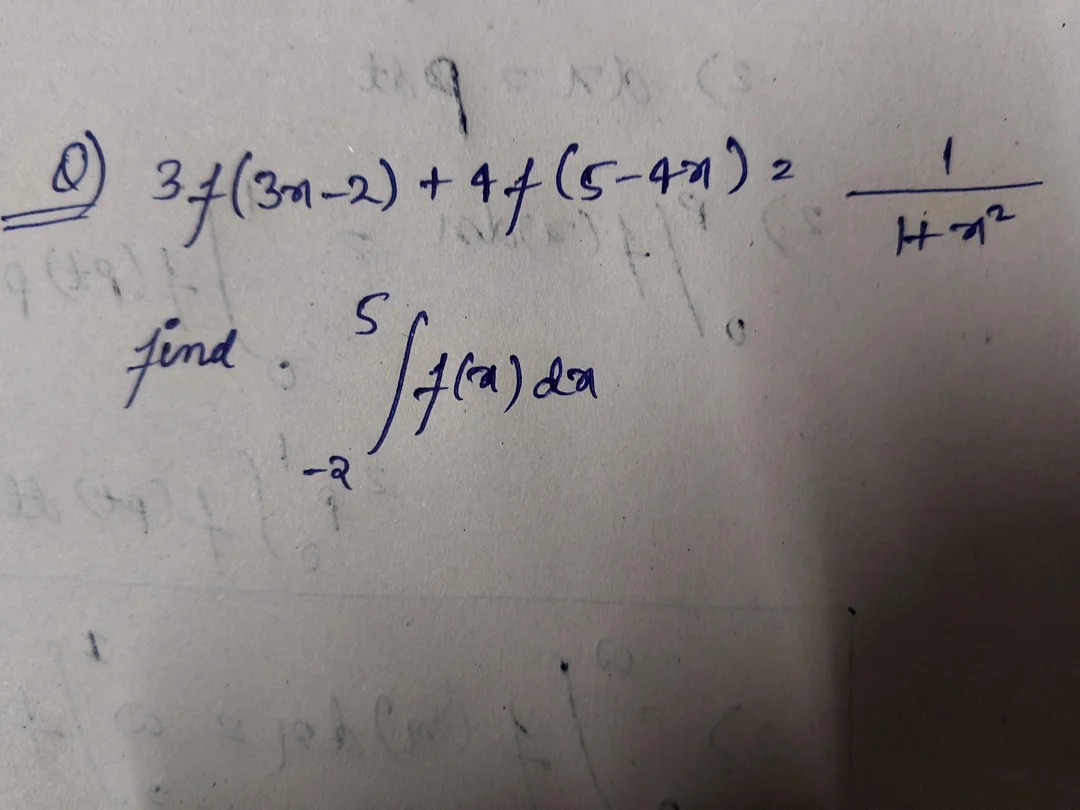 Q) 3f(3x-2) + 4f(5-4x) = 1/(1+x²)
find. ∫₋₂⁵ f(x) dx